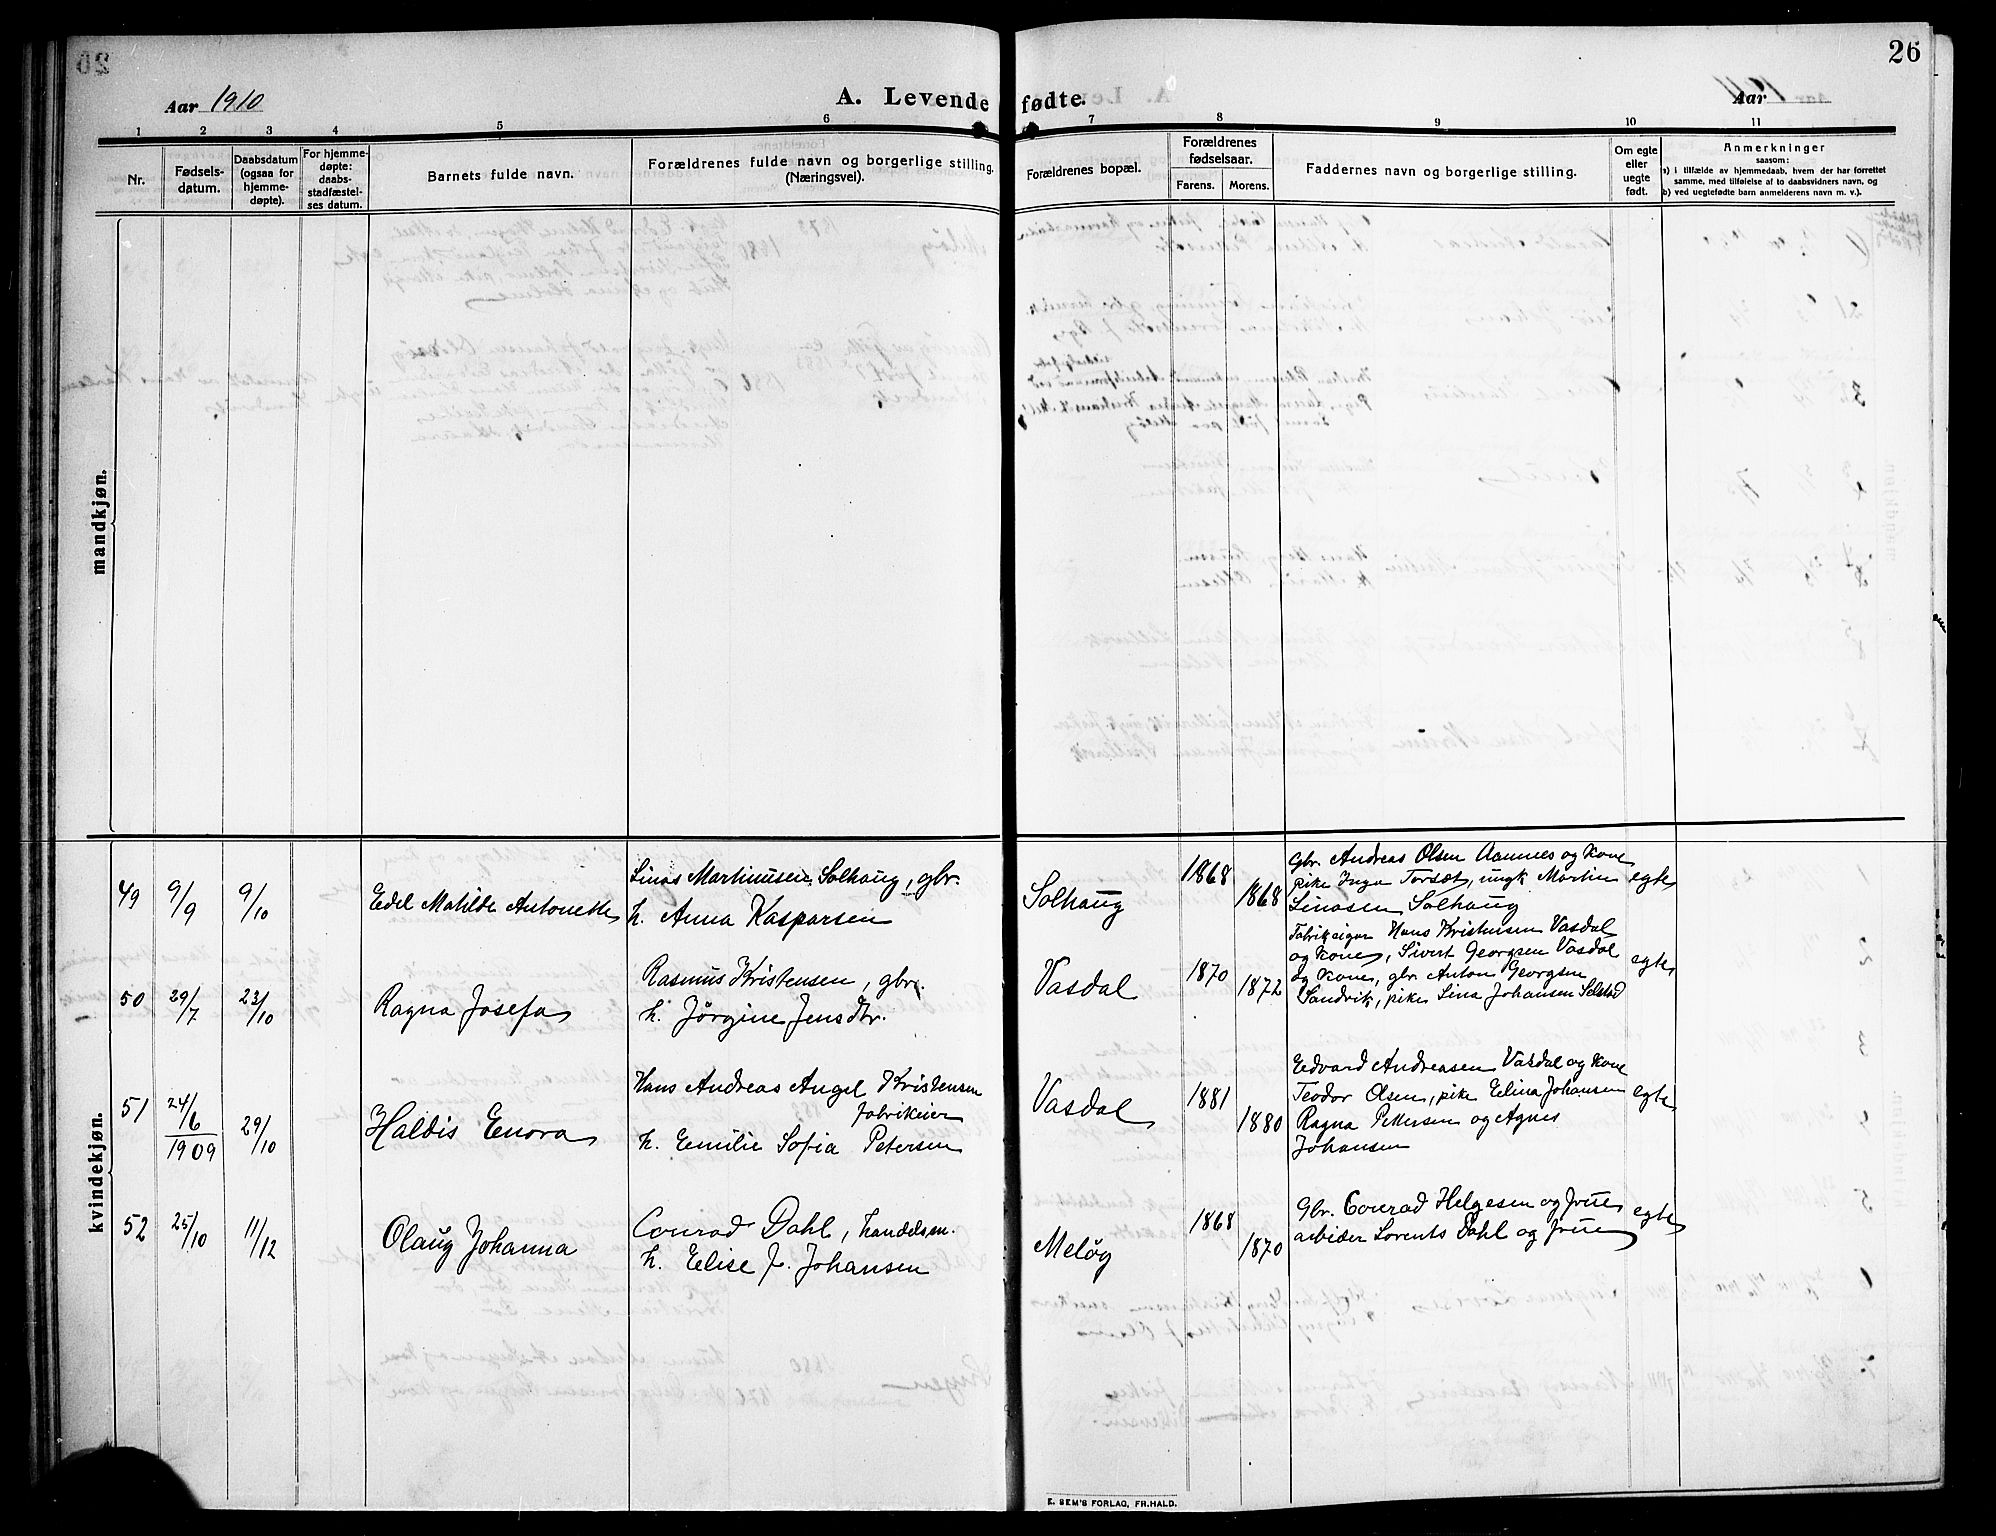 26
Aar 1910
A. Levende fødte.
Aar
1 2 3 4 5 6 7 8 9 10 11
Nr.
Fødsels-
datum.
Daabsdatum
(ogsaa for
hjemme-
døpte).
For hjemme-
døpte:
daabs-
stadfæstel-
ses datum.
Barnets fulde navn.
Forældrenes fulde navn og borgerlige stilling.
(Næringsvei).
Forældrenes bopæl.
Forældrenes
fødselsaar.
Farens. Morens.
Faddernes navn og borgerlige stilling.
Om egte
eller
uegte
født.
Anmerkninger
saasom:
a) i tilfælde av hjemmedaab, hvem der har forrettet
samme, med tilføielse af to daabsvidners navn, og
b) ved uegtefødte barn anmelderens navn m. v.).
mandkjøn.
kvindekjøn.
49 9/9 9/10
Edel Matilde Antonette
Linas Martinusen Solhaug, gbr.
h. Anna Kasparsen
Solhaug
1868
1868
Gbr. Andreas Olsen Aamnes og kone
pike Inga Torsæt, ungk Martin
Linasen Solhaug
egte
50 29/7 23/10
Ragna Josefa
Rasmus Kristensen, gbr.
h. Jörgine Jensdtr.
Vasdal
1870
1872
Fabrikeiger Hans Kristensen Vasdal
og kone, Sivert Georgsen Vasdal
og kone, gbr. Anton Georgsen
Sandvik, pike Lina Johansen Selstad
egte
51 24/6
1909
29/10
Haldis Enora
Hans Andreas Angel Kristensen
fabrikeier
h. Emilie Sofia Petersen
Vasdal
1881
1880
Edvard Andreasen Vasdal og kone
Teodor Olsen, pike Elina Johansen
Ragna Pettersen og Agnes
Johansen
egte
52 25/10 11/12
Olaug Johanna
Conrad Dahl, handelsm.
h. Elise J. Johansen
Meløg
1868
1870
Gbr. Conrad Helgesen og frue
arbider Lorents Dahl og frue
egte
E. SEM'S FORLAG, FR.HALD.